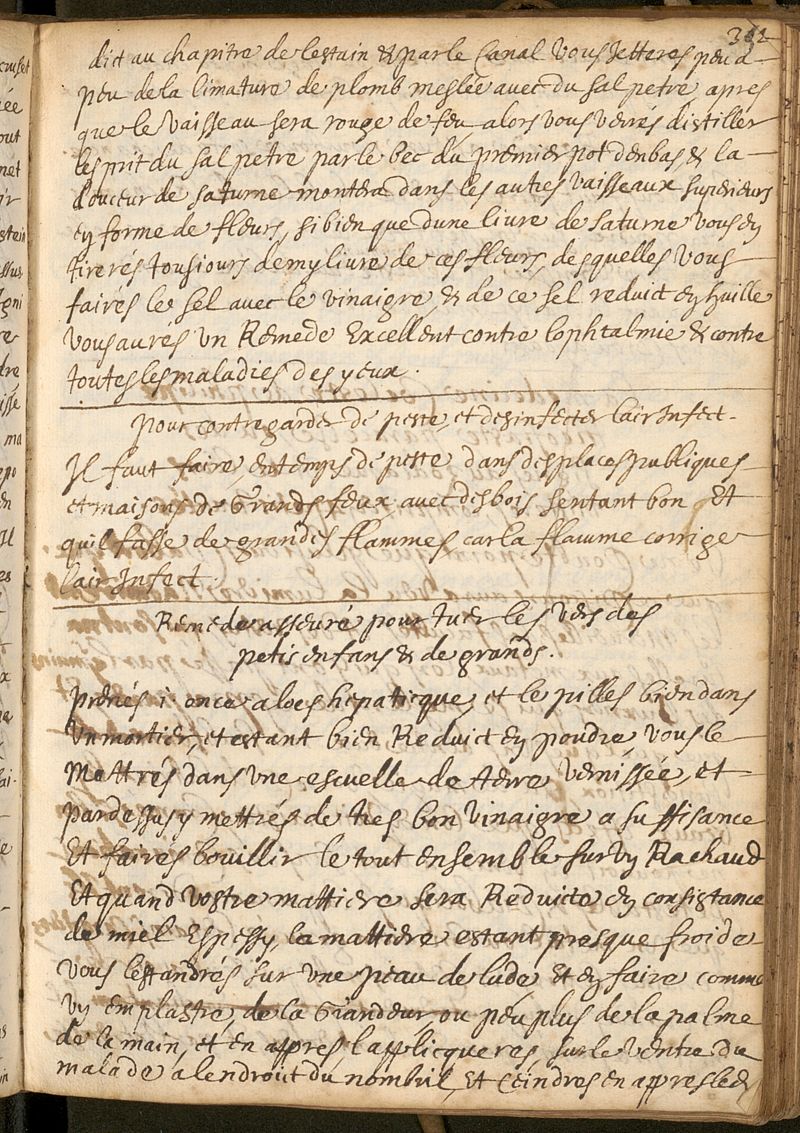 312
dict au chapitre de lestain & par le Canal vous Jetteres peu a
peu de la limature de plomb meslée avec du salpetre apres
que le vaisseau sera rouge de feu alors vous verrés distiller
lesprit du salpetre par le bec du premier pot denbas & la
douceur de saturne montera dans les autres vaisseaux superieurs
en forme de fleurs, si bien que dune livre de saturne vous en
tirerés tousiours demy livre de ces fleurs, desquelles vous
fairés le sel avec le vinaigre, & de ce sel reduict en huille
vous aures un Remede Excellent contre lophtalmie & contre
toutes les maladies des yeux.
pour contregarder de peste, et desinfecter lair Infect.
Il faut faire, en temps de peste dans des places publiques
et maisons de Grands feux avec des bois sentant bon Et
quil fasse de grandes flammes, car la flamme corrige
lair Infect.
Remede asseuré pour tuer les vers des
petis enfans & de grands.
prenés 1 once aloes hepaticque, et le pilles bien dans
un mortier, et estant bien Reduict en poudre, vous le
Mettrés dans une escuelle de terre vernissée, et
par dessus y mettrés de tres bon vinaigre a suffisance
Et fairés bouillir le tout ensemble sur un Rachaud
Et quand vostre mattiere sera Reduicte en consistance
de miel Espessy, la mattiere estant presque froide
vous lestandrés sur une peau de lude Et en faire comme
un emplastre, de la Grandeur ou peu plus de la palme
de la main, et en appres lapplicqueres, sur le ventre du
malade a lendroit du nombril, Et Ceindres en appres led